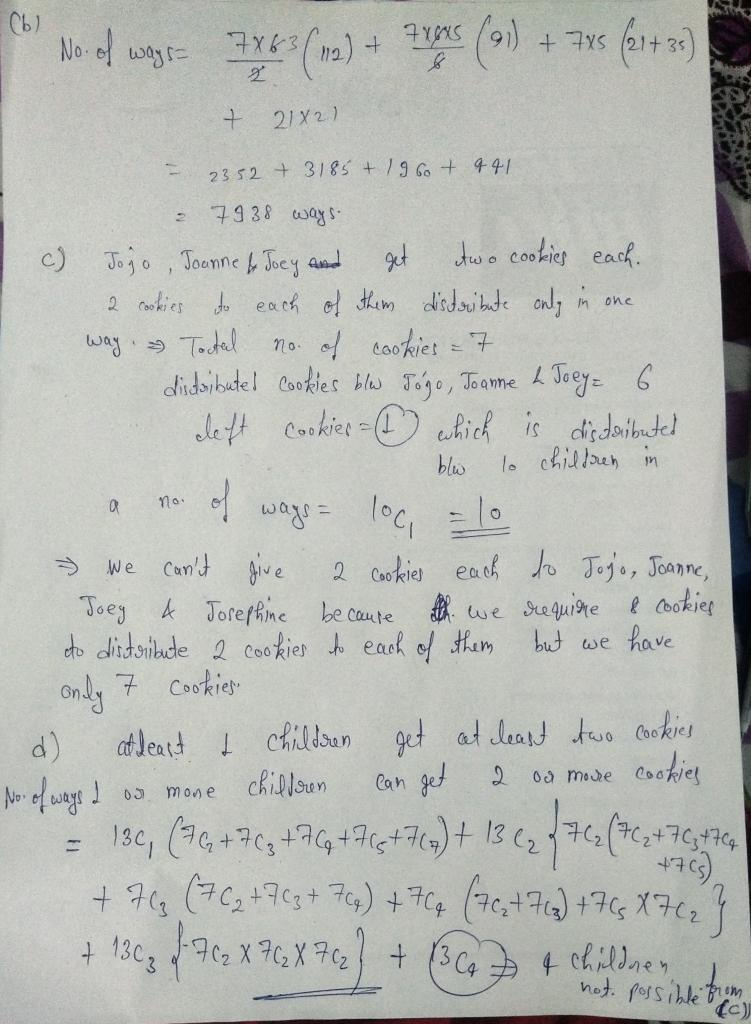 (b)
No. of ways = 7×6 3/2 (112) + 7×6×5/6 (91) + 7×5 (21+35)
+ 21×21
= 2352 + 3185 + 1960 + 441
= 7938 ways.
c) Jojo, Joanne & Joey and get two cookies each.
2 cookies to each of them distribute only in one
way. ⇒ Total no. of cookies = 7
distributed cookies b/w Jojo, Joanne & Joey = 6
left cookies = 1 which is distributed
b/w 10 children in
a no. of ways = 10C1 = 10
⇒ We can't give 2 cookies each to Jojo, Joanne,
Joey & Josephine because we require 8 cookies
to distribute 2 cookies to each of them but we have
only 7 cookies.
d) atleast 1 children get at least two cookies
No. of ways 1 or more children can get 2 or more cookies
= 13C1 (7C2 + 7C3 + 7C4 + 7C5 + 7C7) + 13C2 { 7C2 (7C2 + 7C3 + 7C4
+ 7C5)
+ 7C3 (7C2 + 7C3 + 7C4) + 7C4 (7C2 + 7C3) + 7C5 × 7C2 }
+ 13C3 { 7C2 × 7C2 × 7C2 } + 13C4 ⇒ 4 children
not possible from
(c))